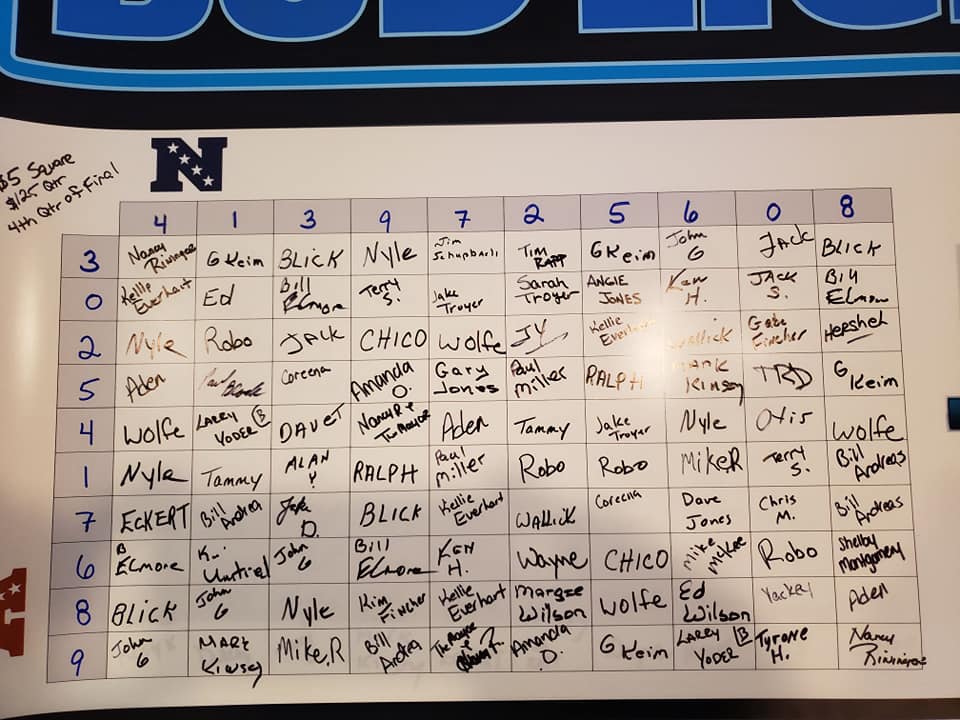 BUD LIG
$5 Square
$125 Qtr
4th Qtr of Final
N
4 1 3 9 7 2 5 6 0 8
3 Nancy G Keim BLICK Nyle Jim TIM RAPP G Keim John G JACK BLICK
0 Kellie Everhart Ed Bill ELmore Terry S. Jake Troyer Sarah Troyer ANGIE JONES Ken H. JACK S. Bill ELmore
2 Nyle Robo JACK CHICO Wolfe JY Kellie Everhart Gabe Fincher HERSHEL
5 Aden Paul Coreena Amanda O. Gary Jones Paul Miller RALPH MARK Kinsey TRD G Keim
4 Wolfe LARRY YODER B DAVET Nancy R + The Mayor Aden Tammy Jake Troyer Nyle Otis Wolfe
1 Nyle Tammy ALAN Y RALPH Paul Miller Robo Robo MIKE R Terry S. Bill Andreas
7 ECKERT Bill Andrea D. BLICK Kellie Everhart WALLICK Coreena Dave Jones Chris M. Bill Andreas
6 B ELmore John G Bill ELmore KEN H. Wayne CHICO Mike McKee Robo Shelby Montgomery
8 BLICK John G Nyle Kim Fincher Kellie Everhart Margee Wilson Wolfe Ed Wilson Yackey Aden
9 John G MARK Kinsey Mike.R Bill Andrea The Mayor + Amanda O. G Keim LARRY B YODER TYRONE H. Nancy
A